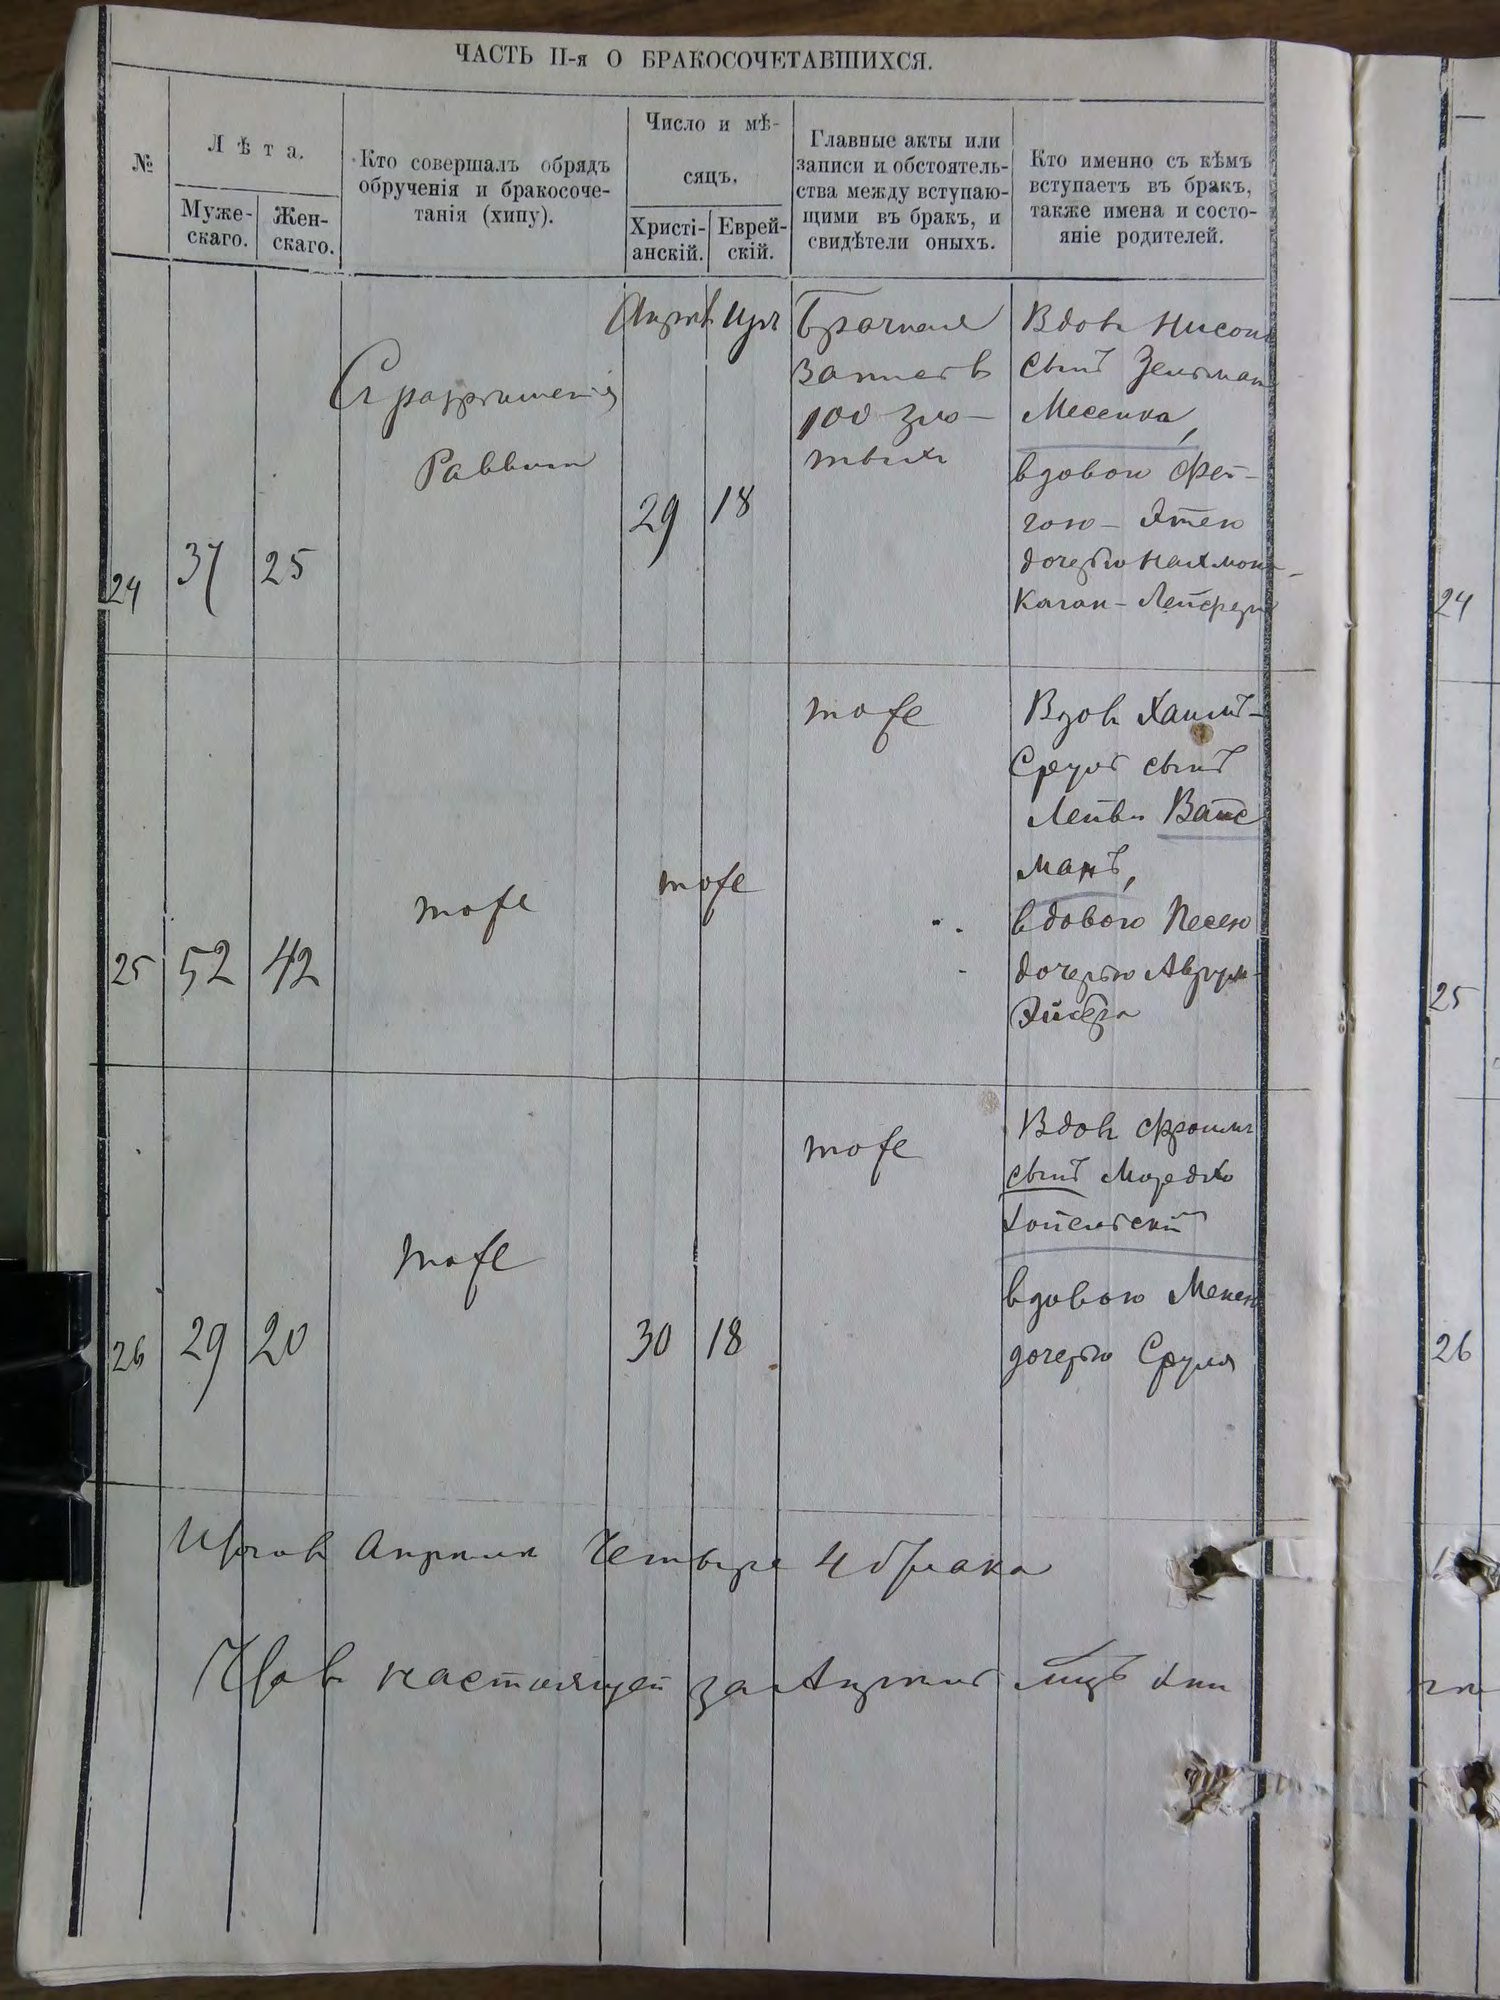 ЧАСТЬ II-я О БРАКОСОЧЕТАВШИХСЯ.
№
Лѣта.
Муже-
скаго.
Жен-
скаго.
Кто совершалъ обрядъ
обрученія и бракосоче-
танія (хипу).
Число и мѣ-
сяцъ.
Христі-
анскій.
Еврей-
скій.
Главные акты или
записи и обстоятель-
ства между вступаю-
щими въ бракъ, и
свидѣтели оныхъ.
Кто именно съ кѣмъ
вступаетъ въ бракъ,
также имена и состо-
яніе родителей.
24
37
25
Съ разрѣшенія
Раввина
29
18
Брачная
запись въ
100 зло-
тыхъ
Вдовъ Нисонъ
сынъ Зельмана
вдовою Фей-
гою-Этею
дочерью Нахмона
Каган-
24
25
52
42
тоже
тоже
тоже
Вдовъ Хаимъ-
Сруль сынъ
Лейвы Вайс
манъ,
вдовою Песею
дочерью Аврум-
25
26
29
20
тоже
30
18
тоже
Вдовъ Фроимъ
сынъ Мордко
вдовою
дочерью Сруля
26
Итого въ Апрѣлѣ Четыре 4 брака
настоящей за Апрѣль мцъ